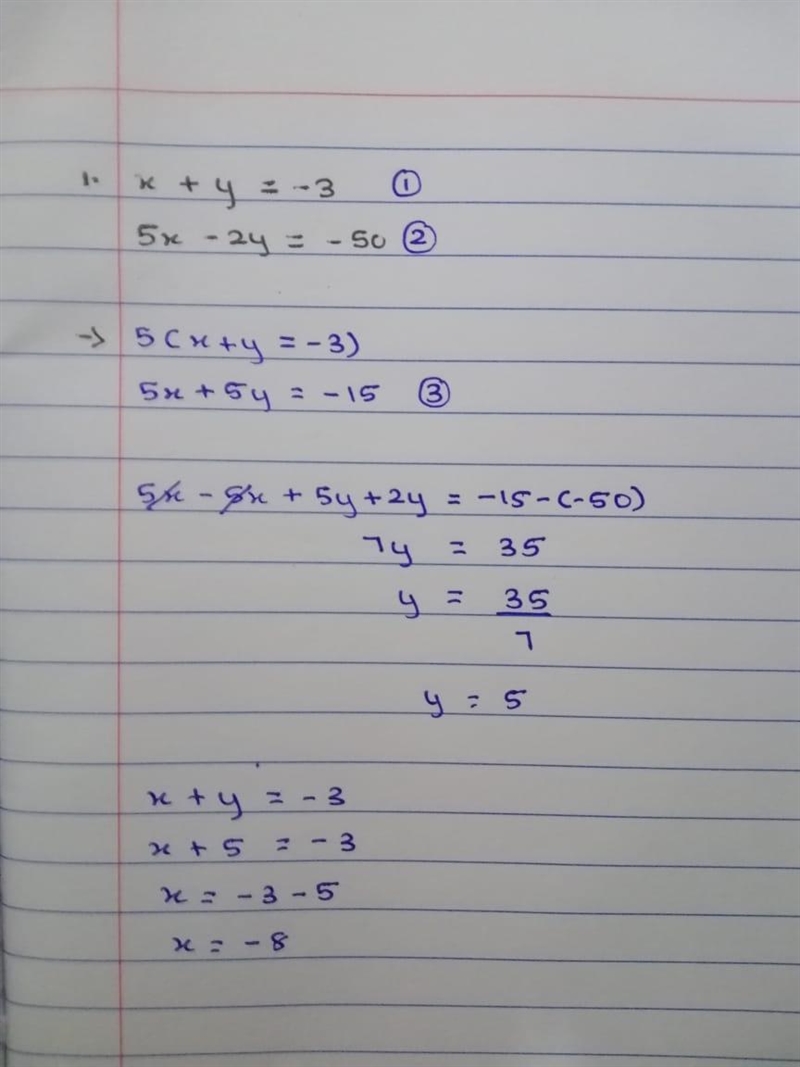 1. x + y = -3 ①
5x - 2y = -50 ②
→ 5(x+y = -3)
5x + 5y = -15 ③
5x - 5x + 5y + 2y = -15 - (-50)
7y = 35
y = 35
7
y = 5
x + y = -3
x + 5 = -3
x = -3 - 5
x = -8